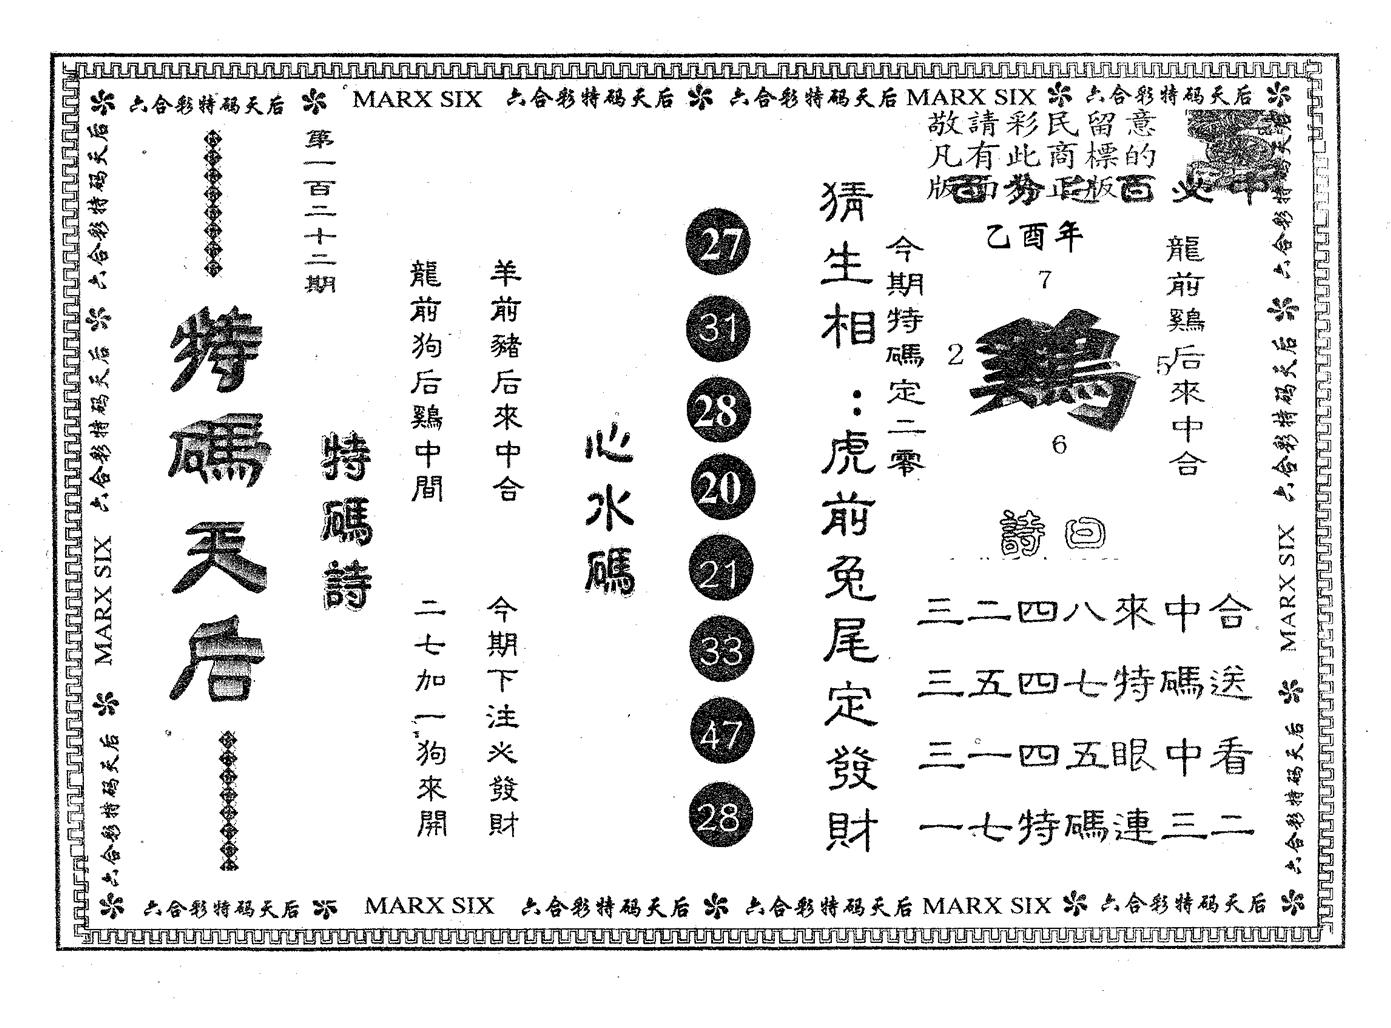 六合彩特码天后 MARX SIX 六合彩特码天后 六合彩特码天后 MARX SIX 六合彩特码天后
敬請彩民留意
凡有此商標的
版面為正版
百分之百必中
乙酉年
7
2
鷄
5
6
龍前鷄后來中合
今期特碼定二零
詩曰
三二四八來中合
三五四七特碼送
三一四五眼中看
一七特碼連三二
猜生相：虎前兔尾定發財
27
31
28
20
21
33
47
28
心水碼
羊前豬后來中合
今期下注必發財
龍前狗后鷄中間
二七加一狗來開
特碼詩
第一百二十二期
特碼天后
六合彩特码天后
六合彩特码天后
MARX SIX
六合彩特码天后
六合彩特码天后
六合彩特码天后
MARX SIX
六合彩特码天后
六合彩特码天后 MARX SIX 六合彩特码天后 六合彩特码天后 MARX SIX 六合彩特码天后